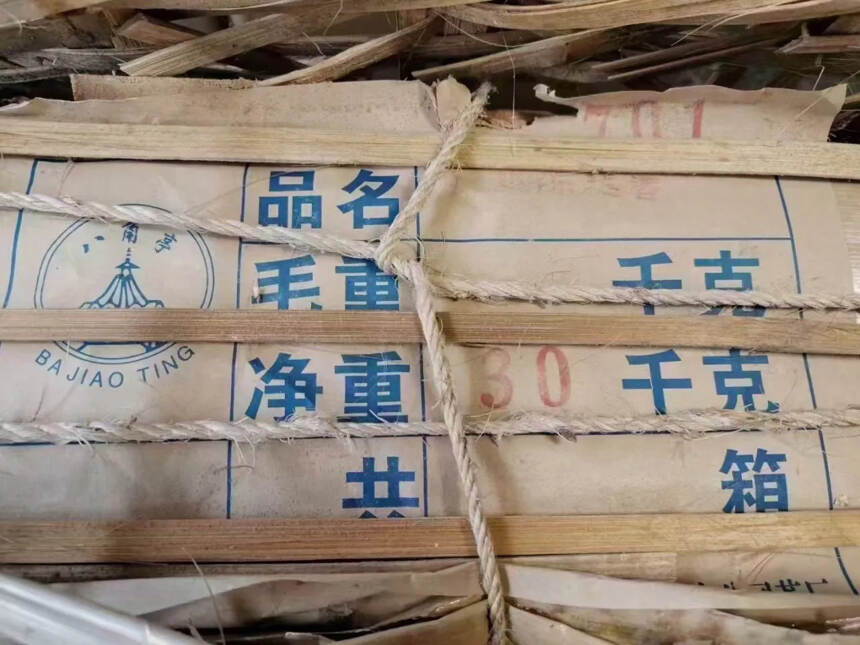 701
八角亭
BAJIAO TING
品名
毛重 千克
净重 30 千克
共 箱